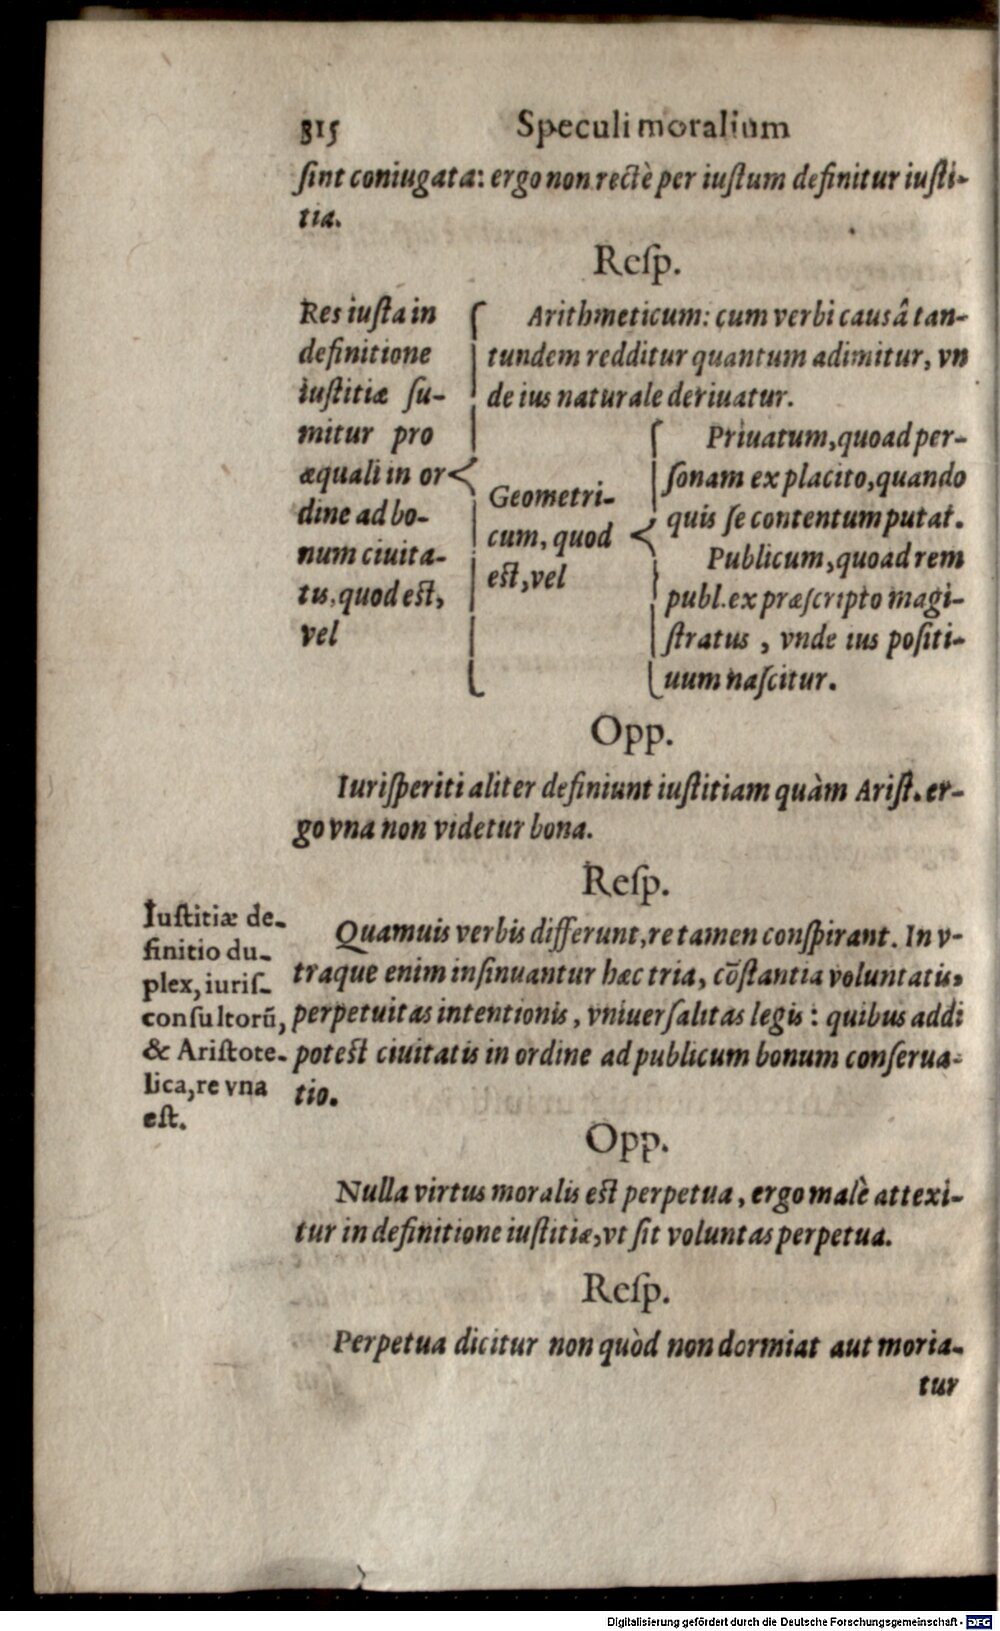 315 Speculi moralium
ſint coniugata: ergo non rectè per iuſtum definitur iuſti-
tia.
Reſp.
Res iuſta in
definitione
iuſtitiæ ſu-
mitur pro
æquali in or
dine ad bo-
num ciuita-
tis, quod eſt,
vel
Arithmeticum: cum verbi causâ tan-
tundem redditur quantum adimitur, vn
de ius naturale deriuatur.
Geometri-
cum, quod
eſt, vel
Priuatum, quoad per-
ſonam ex placito, quando
quis ſe contentum putat.
Publicum, quoad rem
publ. ex præſcripto magi-
ſtratus, vnde ius poſiti-
uum naſcitur.
Opp.
Iuriſperiti aliter definiunt iuſtitiam quàm Ariſt. er-
go vna non videtur bona.
Reſp.
Iuſtitiæ de-
finitio du-
plex, iuriſ-
conſultorũ,
& Ariſtote-
lica, re vna
eſt.
Quamuis verbis differunt, re tamen conſpirant. In v-
traque enim inſinuantur hæc tria, cõſtantia voluntatis,
perpetuitas intentionis, vniuerſalitas legis: quibus addi
poteſt ciuitatis in ordine ad publicum bonum conſerua-
tio.
Opp.
Nulla virtus moralis eſt perpetua, ergo malè attexi-
tur in definitione iuſtitiæ, vt ſit voluntas perpetua.
Reſp.
Perpetua dicitur non quòd non dormiat aut moria-
tur
Digitalisierung gefördert durch die Deutsche Forschungsgemeinschaft - DFG